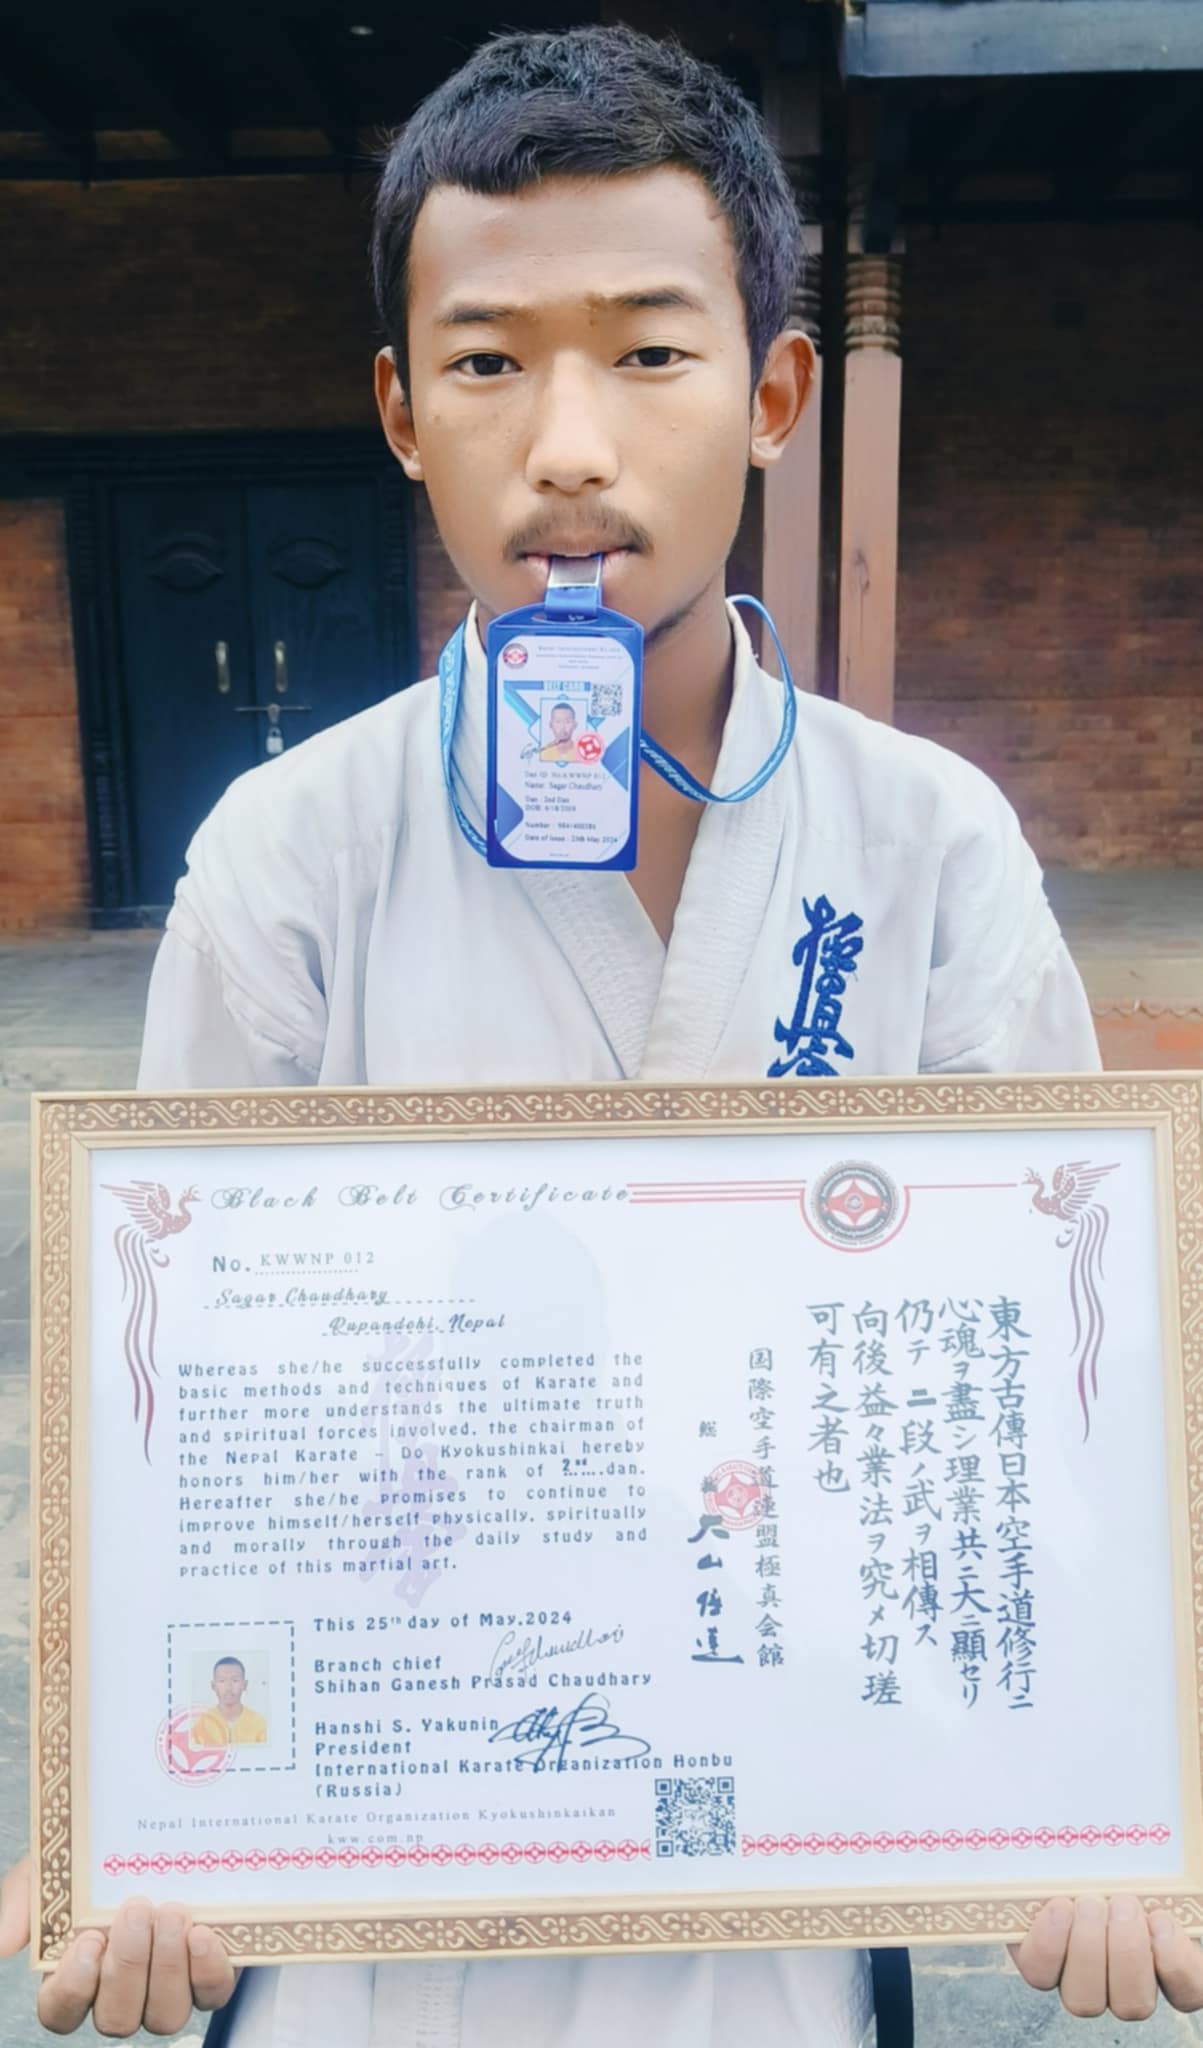 BELT CARD
Dan ID No.KWWNP 012
Name: Sagar Chaudhary
Dan : 2nd Dan
Number :
Date of Issue : 25th May 2024
極真会
Black Belt Certificate
No. KWWNP 012
Sagar Chaudhary
Rupandehi, Nepal
Whereas she/he successfully completed the
basic methods and techniques of Karate and
further more understands the ultimate truth
and spiritual forces involved, the chairman of
the Nepal Karate – Do Kyokushinkai hereby
honors him/her with the rank of 2nd dan.
Hereafter she/he promises to continue to
improve himself/herself physically, spiritually
and morally through the daily study and
practice of this martial art.
This 25th day of May, 2024
Branch chief
Shihan Ganesh Prasad Chaudhary
Hanshi S. Yakunin
President
International Karate Organization Honbu
(Russia)
Nepal International Karate Organization Kyokushinkaikan
kww.com.np
東方古傳日本空手道修行ニ
心魂ヲ盡シ理業共ニ大ニ顯セリ
仍テ二段ノ武ヲ相傳ス
向後益々業法ヲ究メ切瑳
可有之者也
国際空手道連盟極真会館
総裁
大山倍達